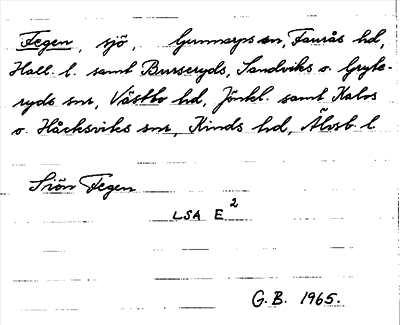 Fegen, sjö, Gunnarps sn, Faurås hd,
Hall. l. samt Burseryds, Sandviks o. Gryte-
ryds snr, Västbo hd, Jönkl. samt Kalvs
o. Håcksviks snr, Kinds hd, Älvsb. l.
Sjön Fegen
LSA E 2
G. B. 1965.